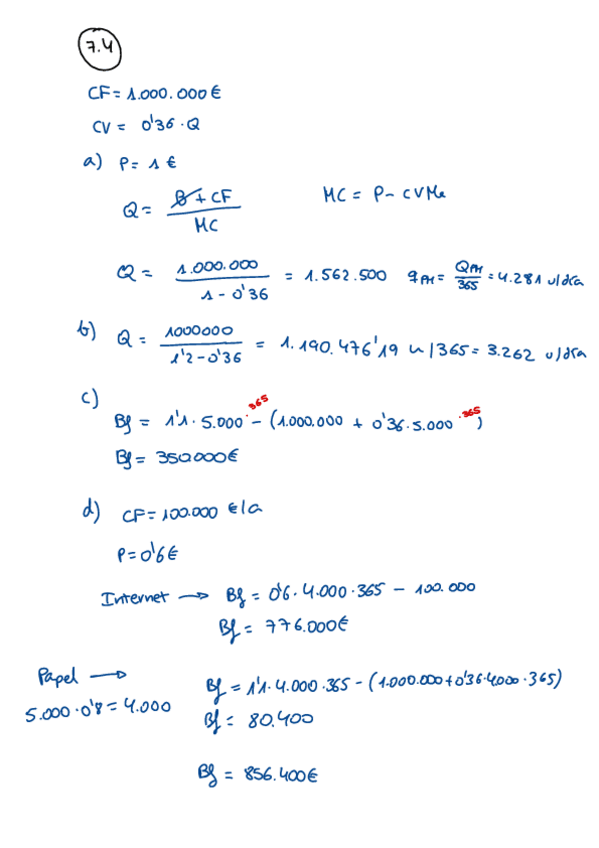 7.4
CF = 1.000.000 €
CV = 0'36 · Q
a) P = 1 €
Q = B + CF / MC    MC = P - CVMe
Q = 1.000.000 / 1 - 0'36 = 1.562.500    qPM = QPM / 365 = 4.281 u/día
b) Q = 1000000 / 1'2 - 0'36 = 1.190.476'19 u / 365 = 3.262 u/día
c)
Bf = 1'1 · 5.000 · 365 - (1.000.000 + 0'36 · 5.000 · 365)
Bf = 350.000 €
d) CF = 100.000 €/a
P = 0'6 €
Internet → Bf = 0'6 · 4.000 · 365 - 100.000
Bf = 776.000 €
Papel → Bf = 1'1 · 4.000 · 365 - (1.000.000 + 0'36 · 4.000 · 365)
5.000 · 0'8 = 4.000    Bf = 80.400
Bf = 856.400 €